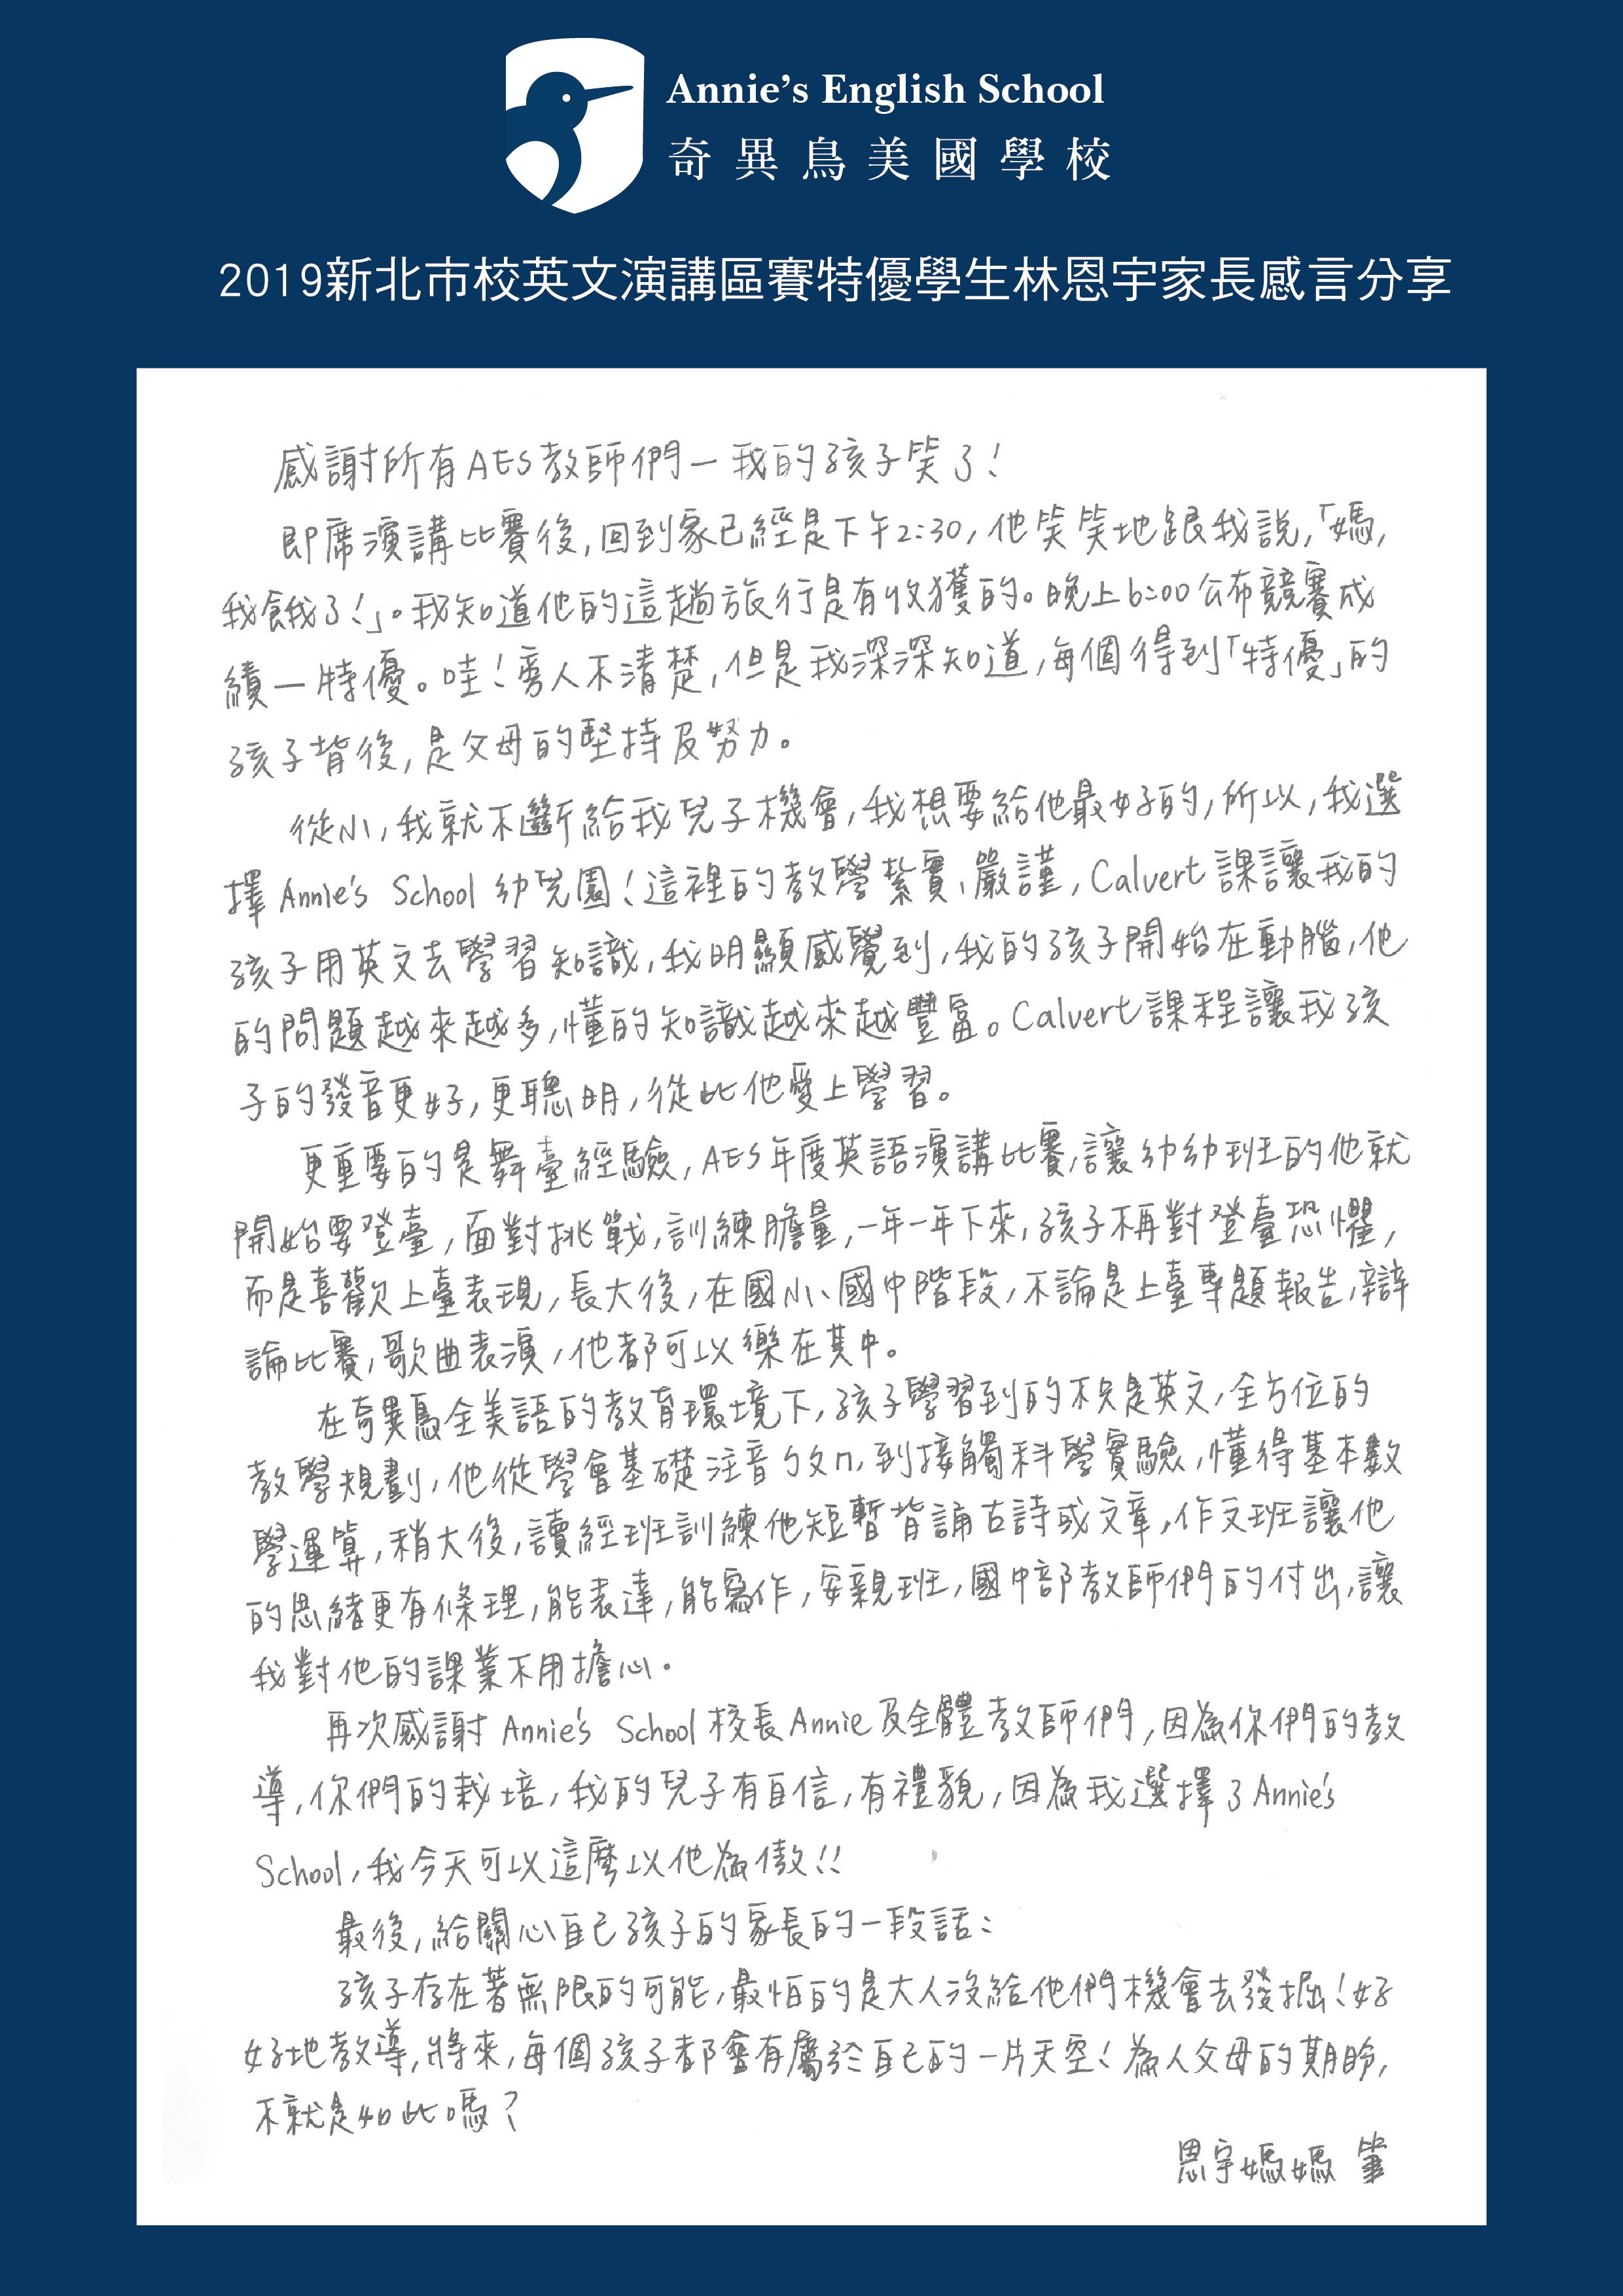 Annie's English School
奇異鳥美國學校
2019新北市校英文演講區賽特優學生林恩宇家長感言分享
感謝所有AES教師們—我的孩子笑了!
即席演講比賽後,回到家已經是下午2:30,他笑笑地跟我說,「媽,
我餓了!」。我知道他的這趟旅行是有收獲的。晚上6:00公布競賽成
績—特優。哇!旁人不清楚,但是我深深知道,每個得到「特優」的
孩子背後,是父母的堅持及努力。
從小,我就不斷給我兒子機會,我想要給他最好的,所以,我選
擇 Annie's School 幼兒園!這裡的教學紮實、嚴謹,Calvert 課讓我的
孩子用英文去學習知識,我明顯感覺到,我的孩子開始在動腦,他
的問題越來越多,懂的知識越來越豐富。Calvert課程讓我孩
子的發音更好,更聰明,從此他愛上學習。
更重要的是舞臺經驗,AES年度英語演講比賽,讓幼幼班的他就
開始要登臺,面對挑戰,訓練膽量,一年一年下來,孩子不再對登臺恐懼,
而是喜歡上臺表現,長大後,在國小、國中階段,不論是上臺專題報告,辯
論比賽,歌曲表演,他都可以樂在其中。
在奇異鳥全美語的教育環境下,孩子學習到的不只是英文,全方位的
教學規劃,他從學會基礎注音ㄅㄆㄇ,到接觸科學實驗,懂得基本數
學運算,稍大後,讀經班訓練他短暫背誦古詩或文章,作文班讓他
的思緒更有條理,能表達,能寫作,安親班,國中部教師們的付出,讓
我對他的課業不用擔心.
再次感謝 Annie's School 校長Annie及全體教師們,因為你們的教
導,你們的栽培,我的兒子有自信,有禮貌,因為我選擇了Annie's
School,我今天可以這麼以他為傲!!
最後,給關心自己孩子的家長的一段話:
孩子存在著無限的可能,最怕的是大人沒給他們機會去發掘!好
好地教導,將來,每個孩子都會有屬於自己的一片天空!為人父母的期盼,
不就是如此嗎?
恩宇媽媽 筆